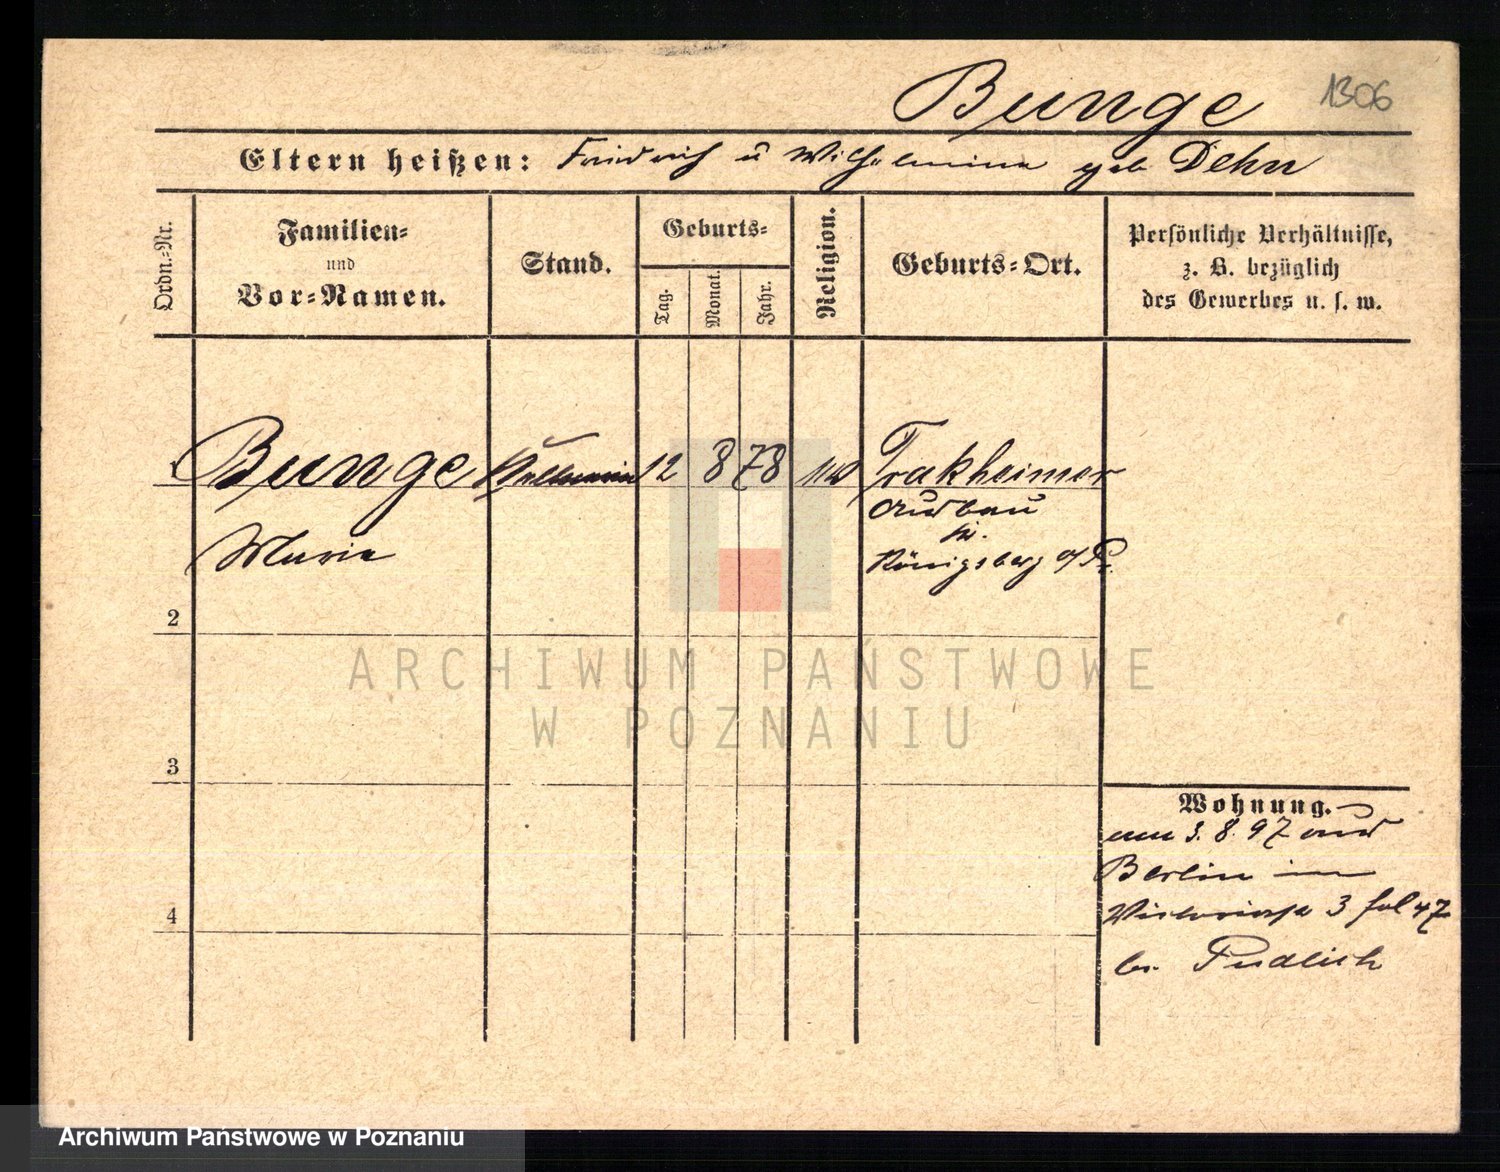 Bunge 1306
Eltern heißen: Friedrich u Wilhelmine geb Dehn
Ordn.-Nr.
Familien-
und
Vor-Namen.
Stand.
Geburts-
Tag.
Monat.
Jahr.
Religion.
Geburts-Ort.
Persönliche Verhältnisse,
z. B. bezüglich
des Gewerbes u. s. w.
1 Bunge Kellnerin 12 8 78 Trakheimer
Ausbau
Marie
Königsberg o/Pr.
2
ARCHIWUM PAŃSTWOWE
W POZNANIU
3
Wohnung.
am 3. 8. 97 aus
Berlin in
Victoriastr 3 fol 47
bei Pudlich
4
Archiwum Państwowe w Poznaniu